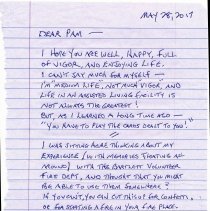 MAY 28, 2017
DEAR PAM —
I HOPE YOU ARE WELL, HAPPY, FULL
OF VIGOR, AND ENJOYING LIFE.
I CAN'T SAY MUCH FOR MYSELF —
I'M LIFE, NOT MUCH VIGOR, AND
LIFE IN AN ASSISTED LIVING FACILITY IS
NOT ALWAYS THE GREATEST!
BUT, AS I LEARNED A LONG TIME AGO —
"YOU HAVE TO PLAY THE CARDS DEALT TO YOU!"
I WAS SITTING HERE THINKING ABOUT MY
EXPERIENCE (WITH MEMORIES FLOATING
AROUND) WITH THE BARTLETT VOLUNTEER
FIRE DEPT, AND THOUGHT THAT YOU MIGHT
BE ABLE TO USE THEM SOMEWHERE?
IF YOU WANT, YOU CAN USE FOR COMFORT,
OR FOR STARTING A FIRE IN YOUR FIRE PLACE.